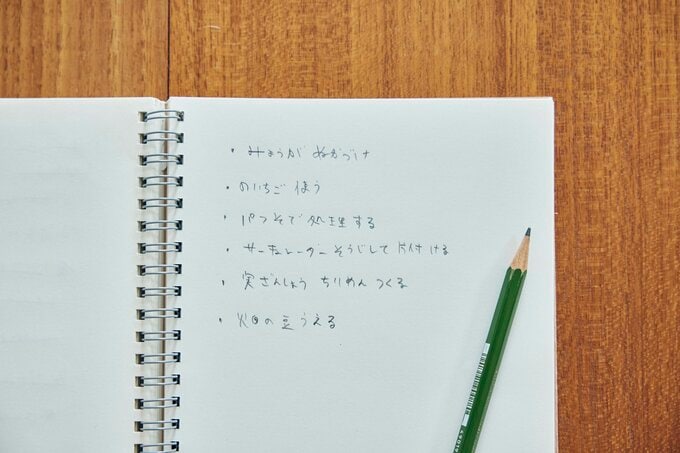 ・みょうが ぬかづけ
・のいちご 使う
・パソそで処理する
・サーキュレーターそうじして片付ける
・実ざんしょう ちりめん つくる
・畑の豆うえる